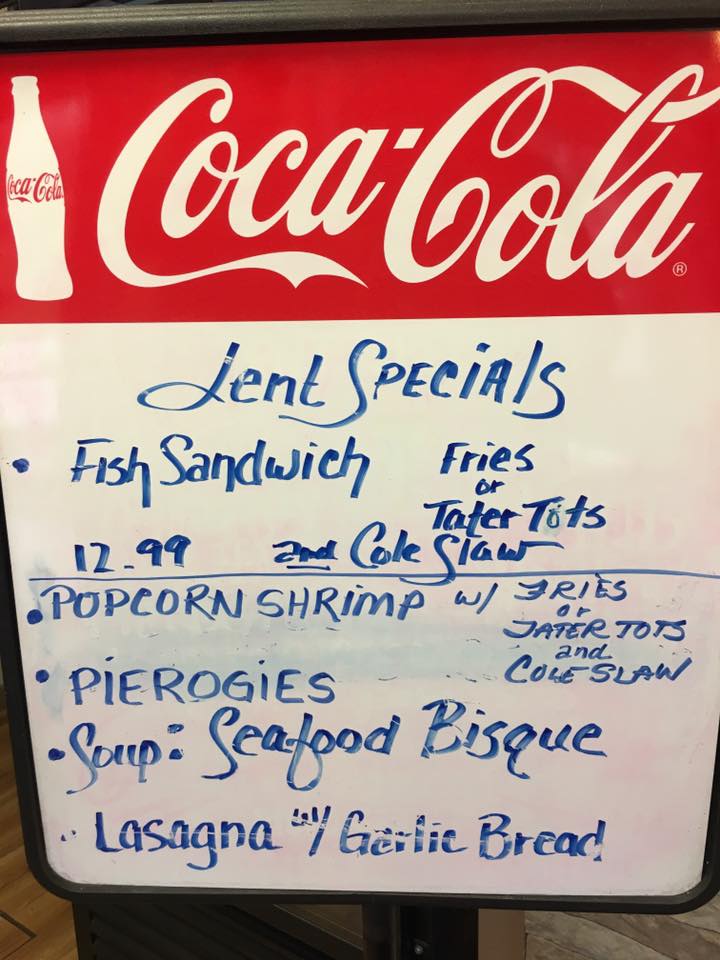 Coca-Cola
Coca-Cola®
Lent Specials
• Fish Sandwich Fries
or
Tater Tots
12.99 and Cole Slaw
• POPCORN SHRIMP w/ FRIES
or
TATER TOTS
and
COLE SLAW
• PIEROGIES
• Soup: Seafood Bisque
• Lasagna w/ Garlic Bread